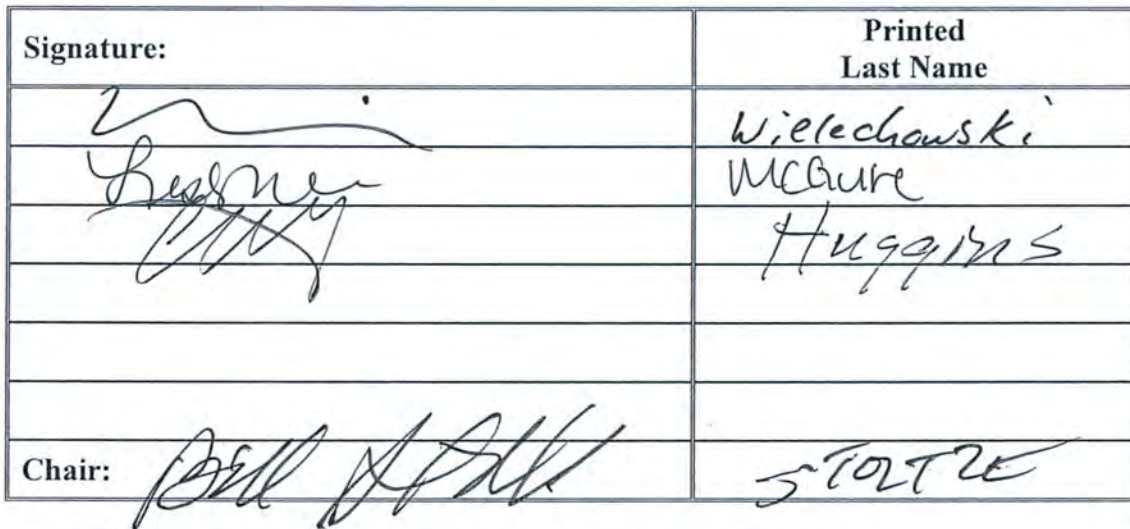 Signature:
Printed
Last Name
Wielechowski
McGuire
Huggins
Chair:
Bill
STOLTZE